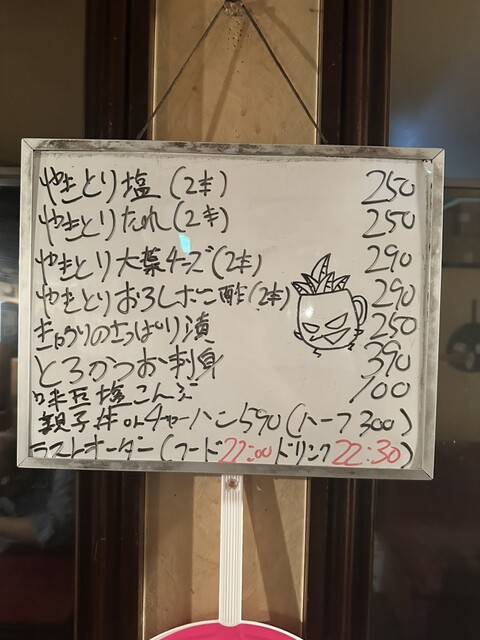 やきとり塩(2本) 250
やきとりたれ(2本) 250
やきとり大葉チーズ(2本) 290
やきとりおろしポン酢(2本) 290
きゅうりのさっぱり漬 250
とろかつお刺身 390
塩こんぶ 100
親子丼orチャーハン590(ハーフ300)
ラストオーダー(フード22:00ドリンク22:30)